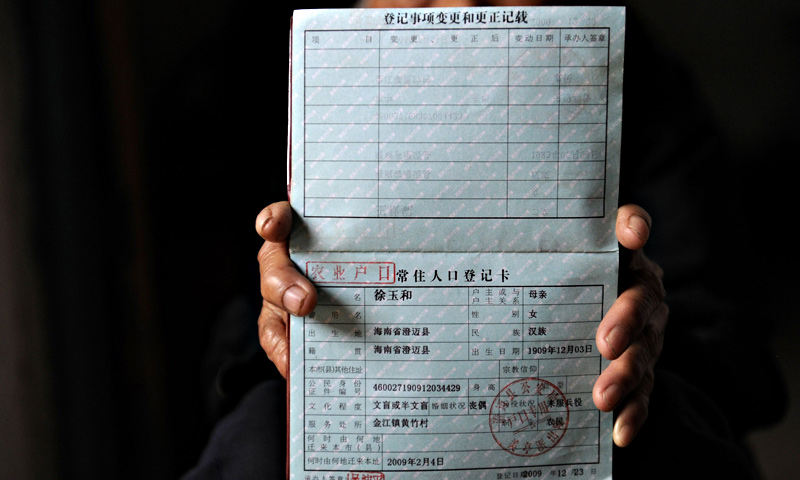 登记事项变更和更正记载
项 目 变 更 、 更 正 后 变动日期 承办人签章
农业户口 常住人口登记卡
名 徐玉和 户主或与户主关系 母亲
用名 性别 女
出生地 海南省澄迈县 民族 汉族
籍贯 海南省澄迈县 出生日期 1909年12月03日
本市(县)其他住址 宗教信仰
公民身份证件编号 460027190912034429 身高
文化程度 文盲或半文盲 婚姻状况 丧偶 兵役状况 未服兵役
服务处所 金江镇黄竹村 农民
何时由何地迁来本市(县)
何时由何地迁来本址 2009年2月4日
承办人签章 登记日期 2009 年 12 月 23 日